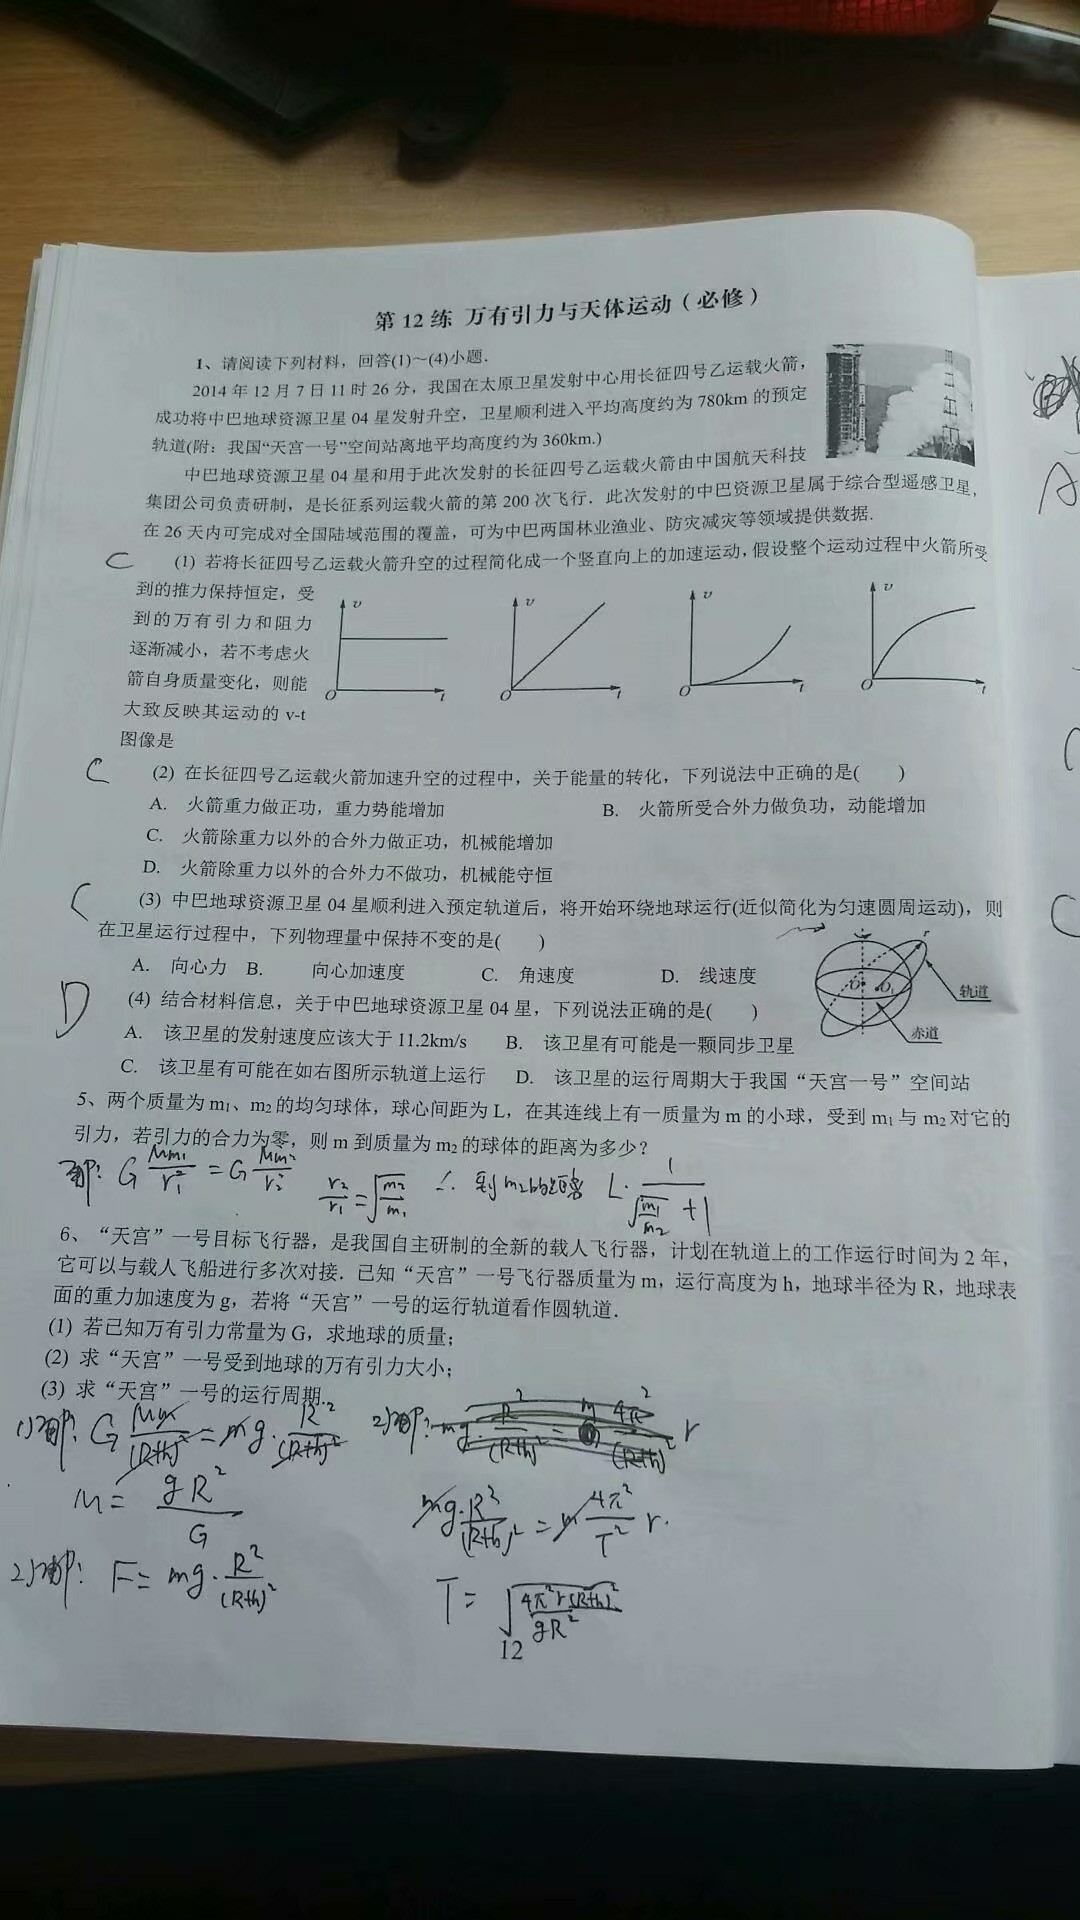 第 12 练 万有引力与天体运动（必修）
1、请阅读下列材料，回答(1)～(4)小题.
2014 年 12 月 7 日 11 时 26 分，我国在太原卫星发射中心用长征四号乙运载火箭，
成功将中巴地球资源卫星 04 星发射升空，卫星顺利进入平均高度约为 780km 的预定
轨道(附：我国“天宫一号”空间站离地平均高度约为 360km.)
中巴地球资源卫星 04 星和用于此次发射的长征四号乙运载火箭由中国航天科技
集团公司负责研制，是长征系列运载火箭的第 200 次飞行．此次发射的中巴资源卫星属于综合型遥感卫星，
在 26 天内可完成对全国陆域范围的覆盖，可为中巴两国林业渔业、防灾减灾等领域提供数据.
C (1) 若将长征四号乙运载火箭升空的过程简化成一个竖直向上的加速运动，假设整个运动过程中火箭所受
到的推力保持恒定，受
到的万有引力和阻力
逐渐减小，若不考虑火
箭自身质量变化，则能
大致反映其运动的 v-t
图像是
v t O
v t O
v t O
v t O
C (2) 在长征四号乙运载火箭加速升空的过程中，关于能量的转化，下列说法中正确的是( )
A. 火箭重力做正功，重力势能增加 B. 火箭所受合外力做负功，动能增加
C. 火箭除重力以外的合外力做正功，机械能增加
D. 火箭除重力以外的合外力不做功，机械能守恒
C (3) 中巴地球资源卫星 04 星顺利进入预定轨道后，将开始环绕地球运行(近似简化为匀速圆周运动)，则
在卫星运行过程中，下列物理量中保持不变的是( )
A. 向心力 B. 向心加速度 C. 角速度 D. 线速度
D (4) 结合材料信息，关于中巴地球资源卫星 04 星，下列说法正确的是( )
A. 该卫星的发射速度应该大于 11.2km/s B. 该卫星有可能是一颗同步卫星
C. 该卫星有可能在如右图所示轨道上运行 D. 该卫星的运行周期大于我国“天宫一号”空间站
轨道
赤道
5、两个质量为 m₁、m₂ 的均匀球体，球心间距为 L，在其连线上有一质量为 m 的小球，受到 m₁ 与 m₂ 对它的
引力，若引力的合力为零，则 m 到质量为 m₂ 的球体的距离为多少？
r₂/r₁ = √(m₂/m₁) ∴ 到m₂的距离 L · 1/(√(m₁/m₂) + 1)
6、“天宫”一号目标飞行器，是我国自主研制的全新的载人飞行器，计划在轨道上的工作运行时间为 2 年，
它可以与载人飞船进行多次对接．已知“天宫”一号飞行器质量为 m，运行高度为 h，地球半径为 R，地球表
面的重力加速度为 g，若将“天宫”一号的运行轨道看作圆轨道.
(1) 若已知万有引力常量为 G，求地球的质量；
(2) 求“天宫”一号受到地球的万有引力大小；
(3) 求“天宫”一号的运行周期.
G Mm/(R+h)² = mg · R²/(R+h)²
M = gR²/G
F = mg · R²/(R+h)²
mg · R²/(R+h)² = m 4π²/T² r.
T = √(4π²r(R+h)²/gR²)
12